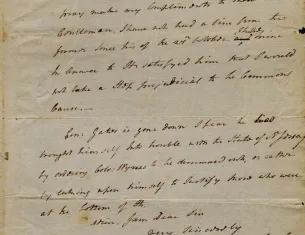 pray make my Compliments to
Gentleman, I have not heard a line from the
former since his of the 21st October
in answer to it satisfyed him that I would
not take a Step prejudicial to the Common
Cause—
Gen: Gates is gone down I fear he has
brought himself into trouble with the State of N Jersey
by ordering Colo. to be or rather
by taking upon himself to justify those who were
at the bottom of the
I am dear Sir
very